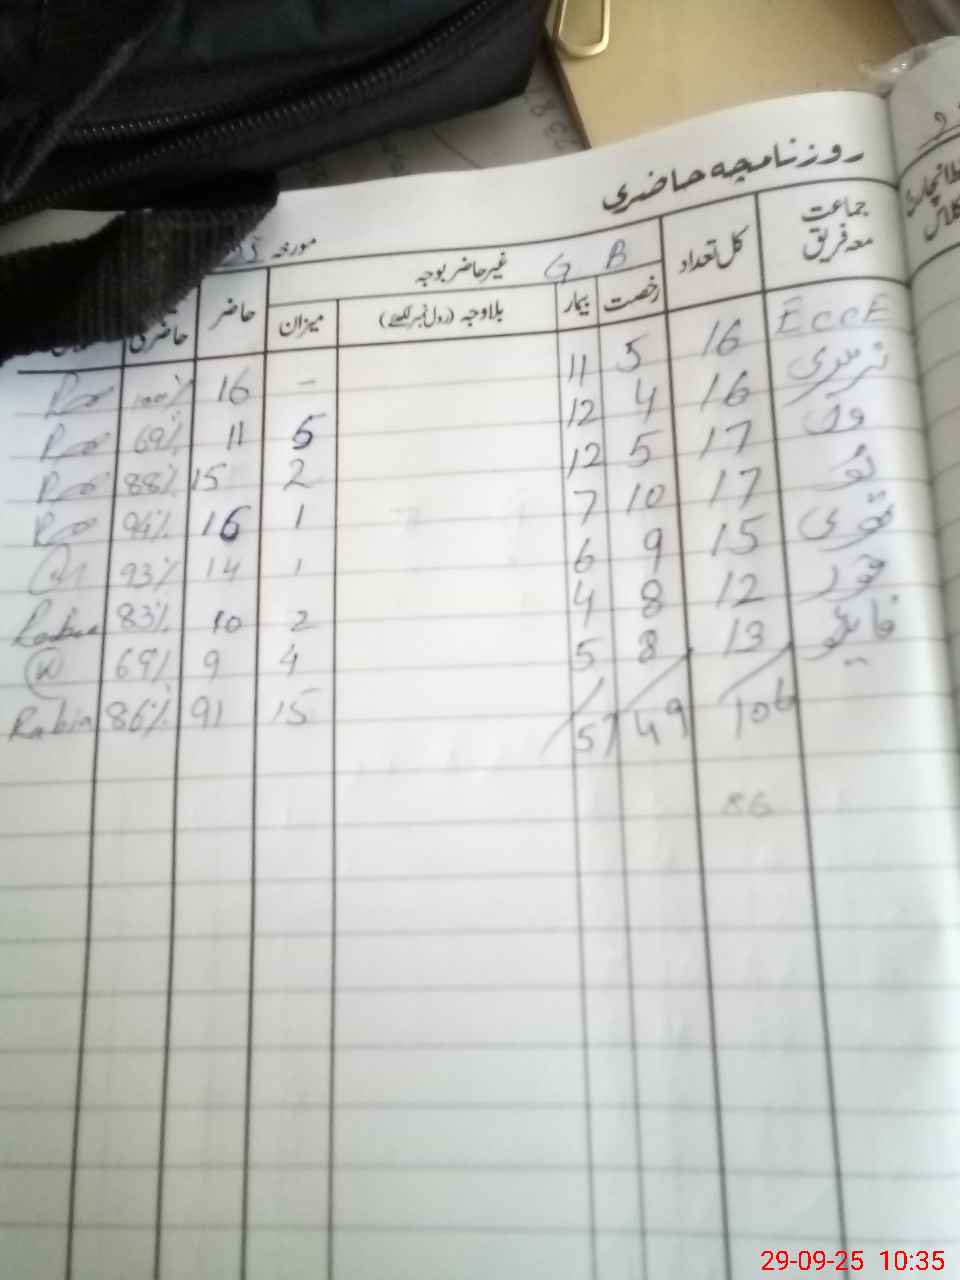 روزنامچہ حاضری
مورخہ
جماعت معہ فریق کل تعداد غیر حاضر بوجہ G B
رخصت بیمار بلاوجہ (رول نمبر لکھئے) میزان حاضر
ECCE 16 5 11 - 16 100%
نرسری 16 4 12 5 11 69%
ون 17 5 12 2 15 88%
ٹو 17 10 7 1 16 94%
تھری 15 9 6 1 14 93%
فور 12 8 4 2 10 83%
فائیو 13 8 5 4 9 69%
106 49 57 15 91 86% Rabia
86
29-09-25 10:35